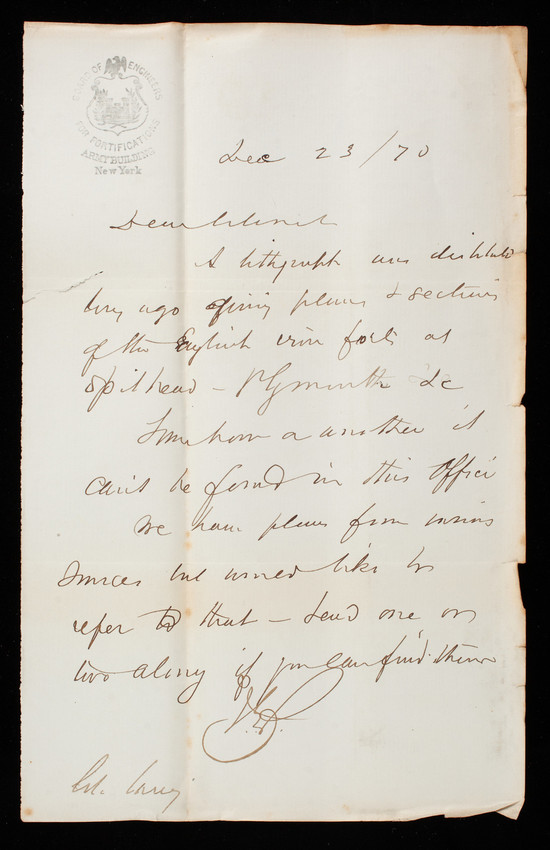 BOARD OF ENGINEERS
FOR FORTIFICATIONS
ARMY BUILDING
New York
Dec 23/70
Dear Colonel
A lithograph was distributed
long ago giving plans & sections
of the English iron forts at
Spithead - Plymouth &c
Some how or another it
can't be found in this office
We have plans from various
sources but would like to
refer to that - Send one or
two along if you can find them
Col. Casey